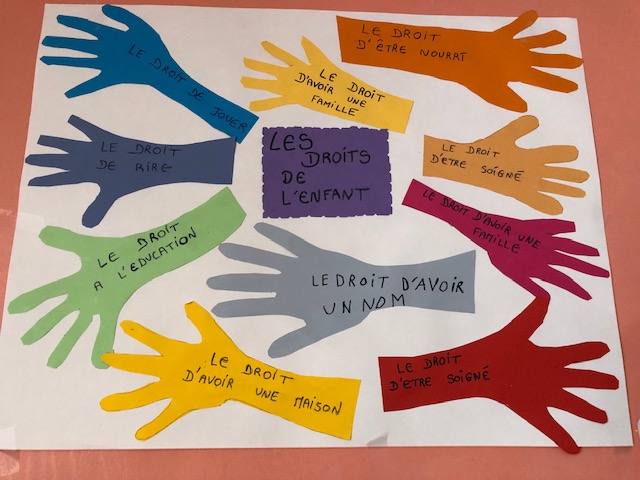 LE DROIT DE JOUER
LE DROIT
D'AVOIR UNE
FAMILLE
LE DROIT
D'ÊTRE NOURRT
LE DROIT
DE RIRE
LES
DROITS
DE
L'ENFANT
LE DROIT
D'ETRE SOIGNÉ
LE DROIT D'AVOIR UNE
FAMILLE
LE DROIT
A L'EDUCATION
LE DROIT D'AVOIR
UN NOM
LE DROIT
D'AVOIR UNE MAISON
LE DROIT
D'ETRE SOIGNÉ